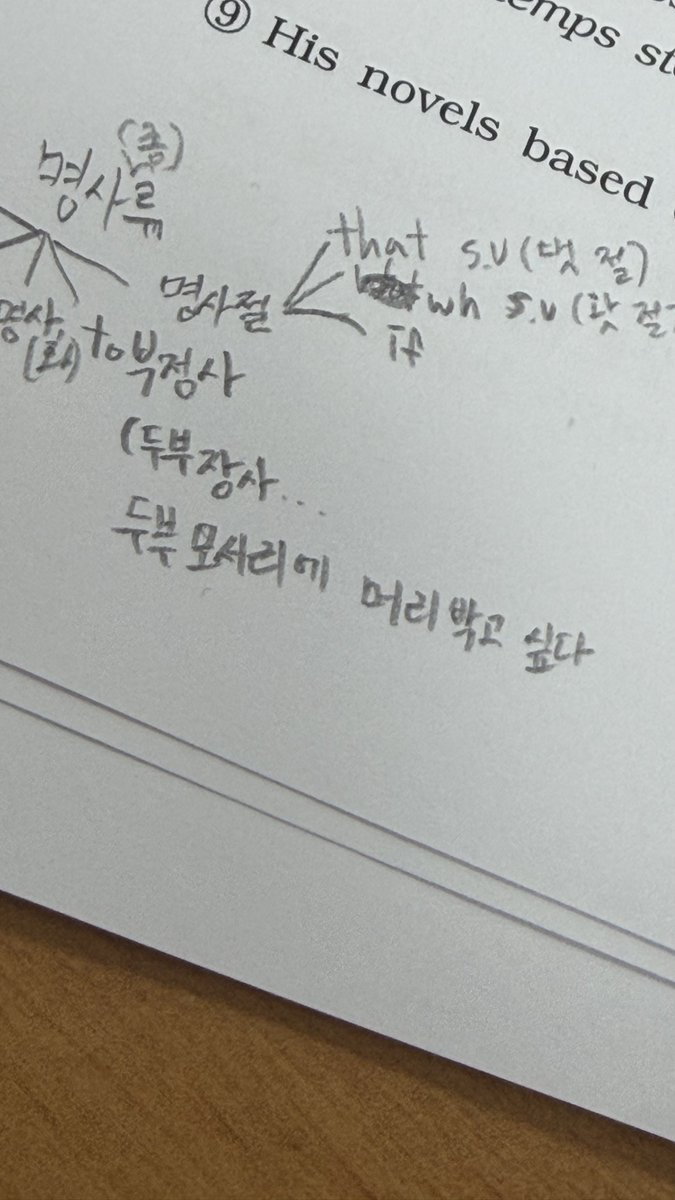 emps st
⑨ His novels based
(종)
명사류
that s.v (댓 절)
명사절
wh s.v (왓 절)
If
명사
(화)
to부정사
(두부장사...
두부 모서리에 머리 박고 싶다